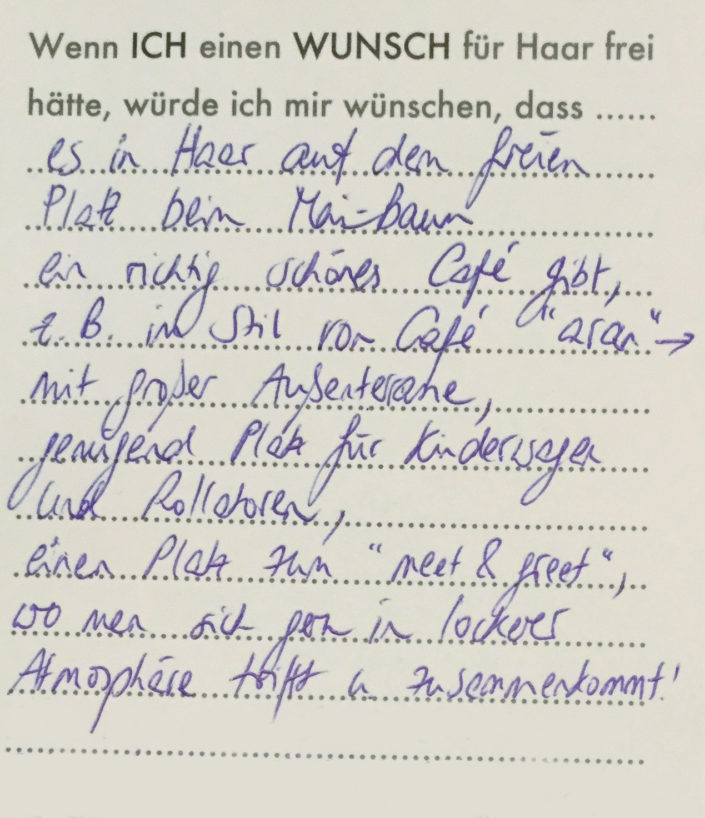 Wenn ICH einen WUNSCH für Haar frei
hätte, würde ich mir wünschen, dass ......
es in Haar auf dem freien
Platz beim Mai-Baum
ein richtig schönes Café gibt,
z. B. im Stil von Café "aran" →
mit großer Außenterasse,
genügend Platz für Kinderwagen
und Rollatoren,
einen Platz zum "meet & greet",
wo man sich gern in lockerer
Atmosphäre trifft u zusammenkommt!